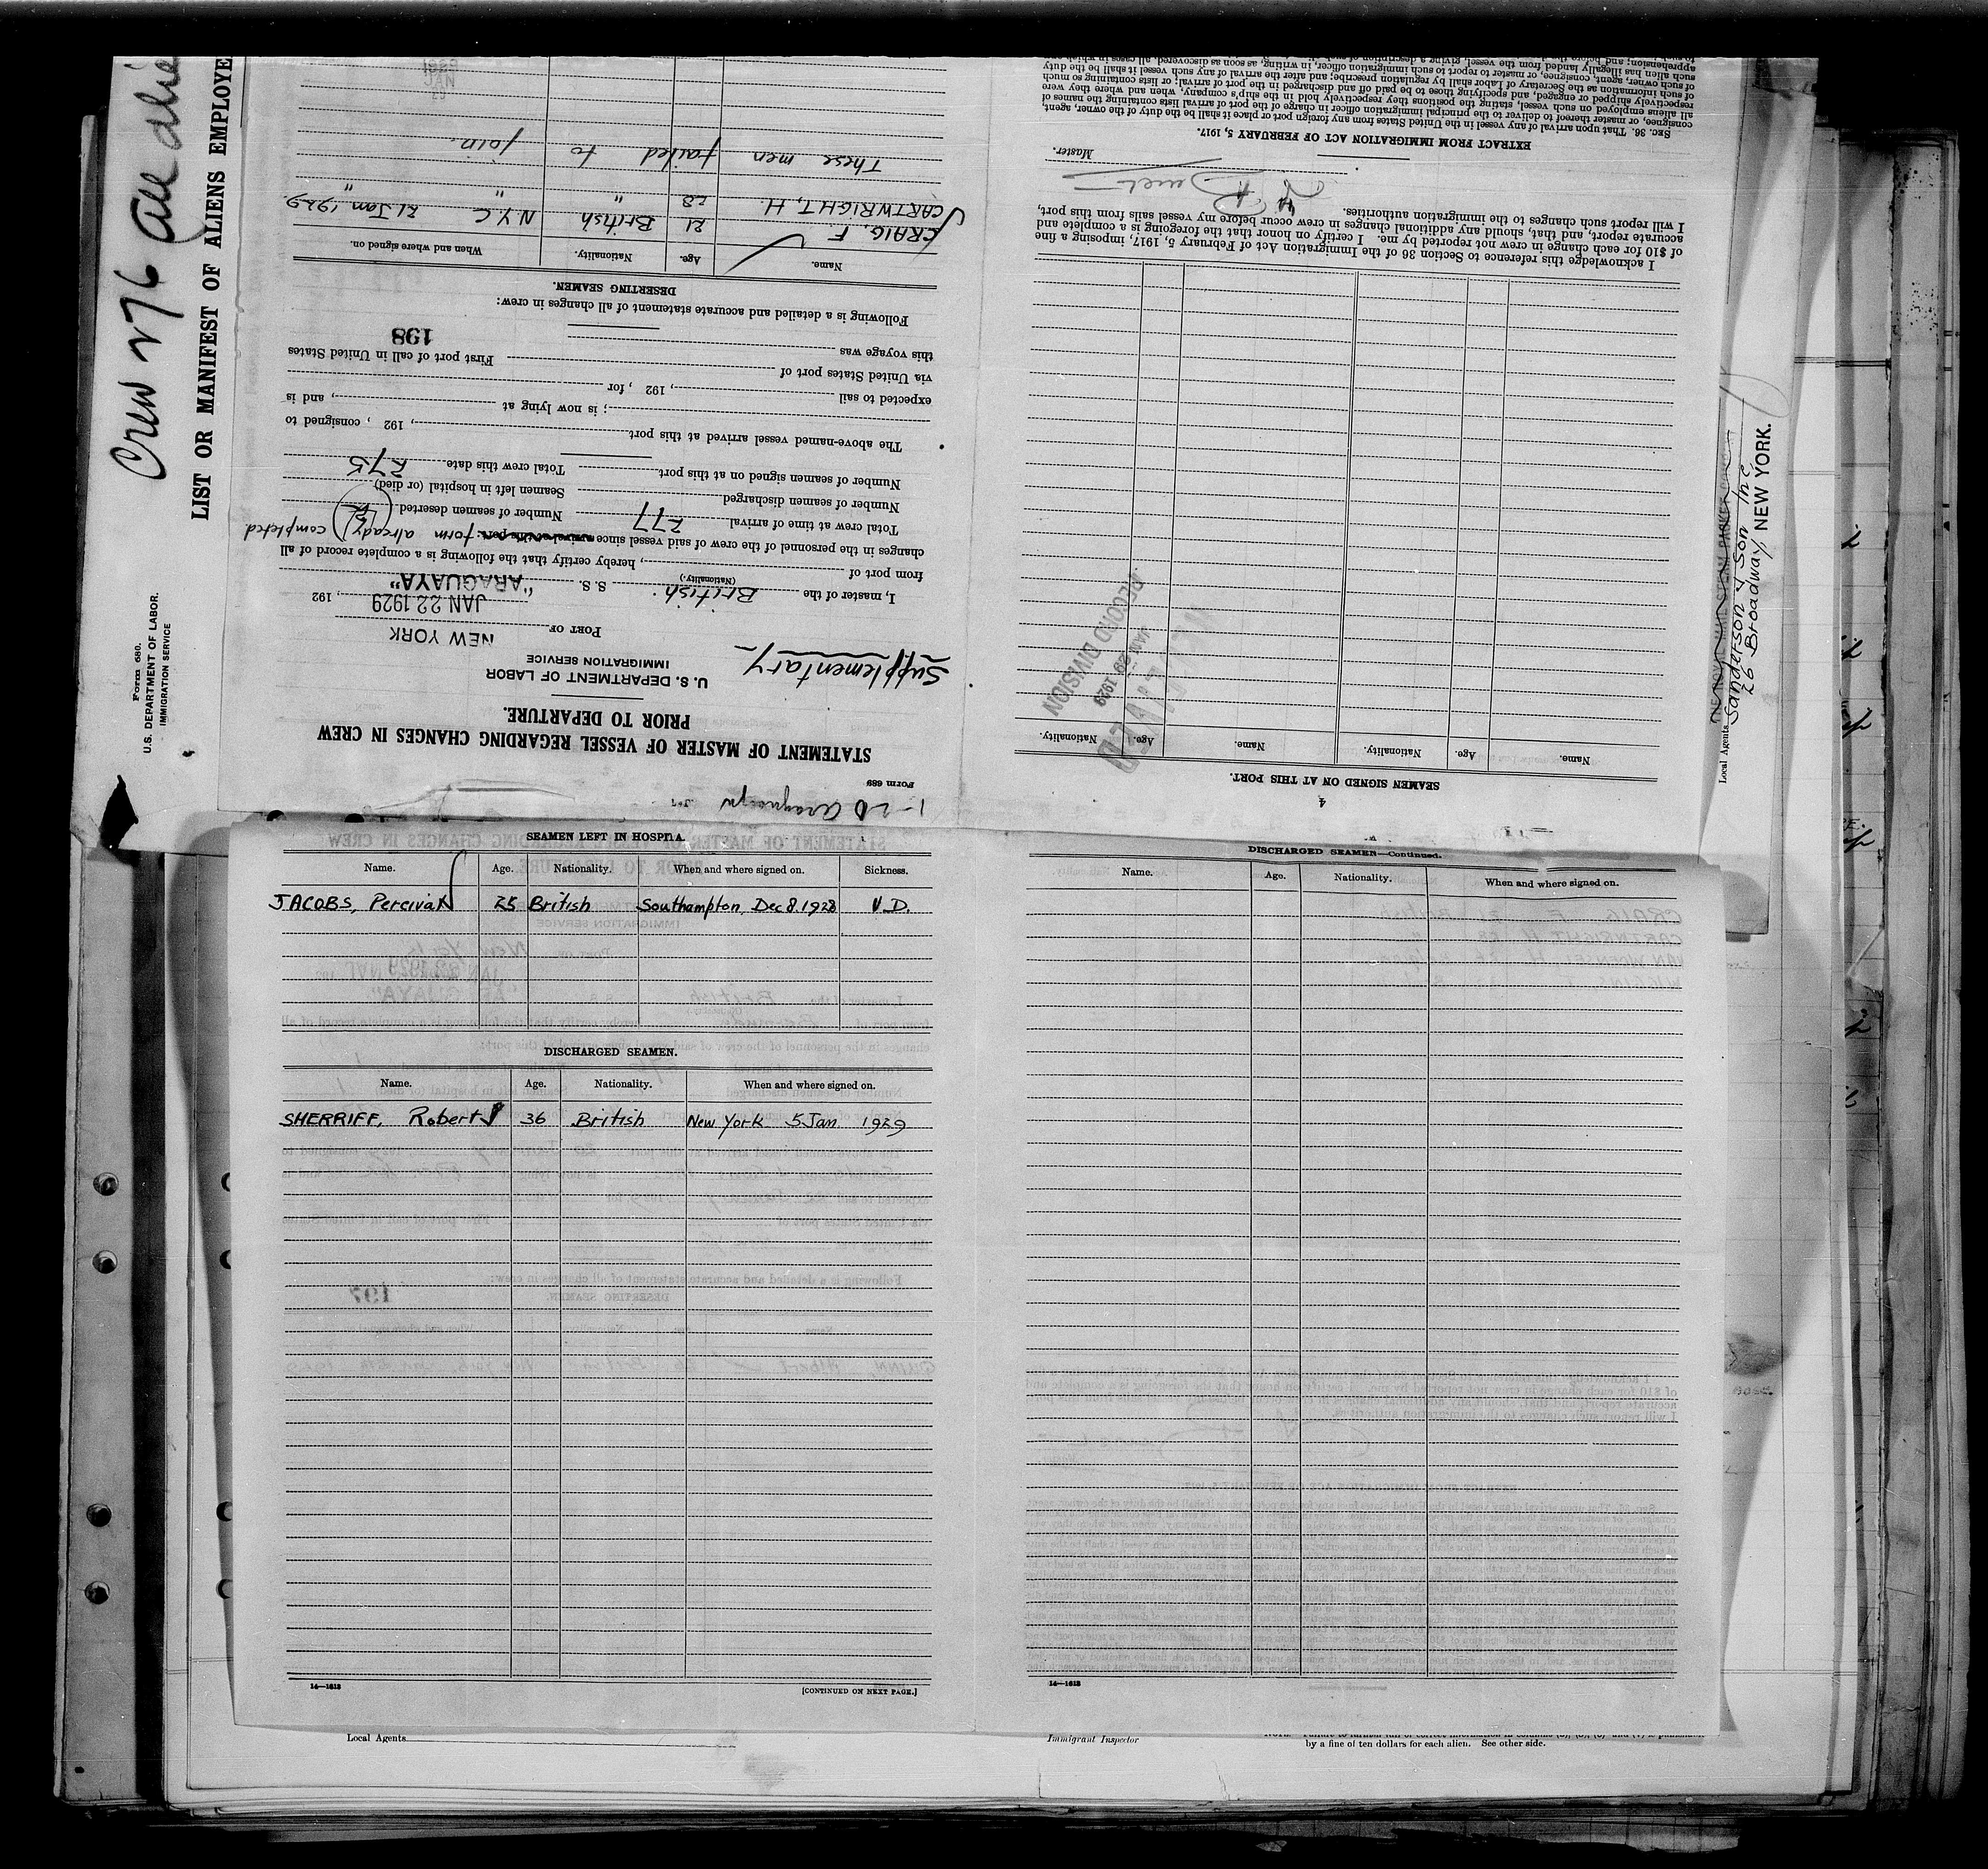 Crew 276 all
LIST OR MANIFEST OF ALIENS EMPLOYE
Form 680.
U.S. DEPARTMENT OF LABOR.
IMMIGRATION SERVICE
Form 689
STATEMENT OF MASTER OF VESSEL REGARDING CHANGES IN CREW
PRIOR TO DEPARTURE.
U. S. DEPARTMENT OF LABOR
IMMIGRATION SERVICE
Supplementary
PORT OF NEW YORK
JAN 22 1929, 192
I, master of the British. S. S. "ARAGUAYA"
(Nationality.)
from port of , hereby certify that the following is a complete record of all
changes in the personnel of the crew of said vessel since arrival at this port: form already completed
Total crew at time of arrival 277 Number of seamen deserted 2
Number of seamen discharged Seamen left in hospital (or died)
Number of seamen signed on at this port Total crew this date 275
The above-named vessel arrived at this port , 192 , consigned to
; is now lying at , and is
expected to sail , 192 , for
via United States port of First port of call in United States
this voyage was
198
Following is a detailed and accurate statement of all changes in crew:
DESERTING SEAMEN.
Name. Age. Nationality. When and where signed on.
CRAIG, F 21 British N.Y.C 21 Jan 1929
CARTWRIGHT, H. 28 " " "
These men failed to join.
JAN
4
SEAMEN SIGNED ON AT THIS PORT.
Name. Age. Nationality. Name. Age. Nationality.
RECORD DIVISION
JAN 29 1929
I acknowledge this reference to Section 36 of the Immigration Act of February 5, 1917, imposing a fine
of $10 for each change in crew not reported by me. I certify on honor that the foregoing is a complete and
accurate report, and that, should any additional changes in crew occur before my vessel sails from this port,
I will report such changes to the immigration authorities.
Master.
EXTRACT FROM IMMIGRATION ACT OF FEBRUARY 5, 1917.
SEC. 36. That upon arrival of any vessel in the United States from any foreign port or place it shall be the duty of the owner, agent,
consignee, or master thereof to deliver to the principal immigration officer in charge of the port of arrival lists containing the names of
all aliens employed on such vessel, stating the positions they respectively hold in the ship's company, when and where they were
respectively shipped or engaged, and specifying those to be paid off and discharged in the port of arrival; or lists containing so much
of such information as the Secretary of Labor shall by regulation prescribe; and after the arrival of any such vessel it shall be the duty
of such owner, agent, consignee, or master to report to such immigration officer, in writing, as soon as discovered, all cases in which any
such alien has illegally landed from the vessel, giving a description of such
Local Agents
Sanderson & Son Inc
26 Broadway, NEW YORK.
SEAMEN LEFT IN HOSPITAL.
Name. Age. Nationality. When and where signed on. Sickness.
JACOBS, Percival 25 British Southampton, Dec 8. 1928 V.D.
DISCHARGED SEAMEN.
Name. Age. Nationality. When and where signed on.
SHERRIFF, Robert 36 British New York 5 Jan 1929
14—1618
[CONTINUED ON NEXT PAGE.]
DISCHARGED SEAMEN—Continued.
Name. Age. Nationality. When and where signed on.
14—1618
Local Agents
Immigrant Inspector
by a fine of ten dollars for each alien. See other side.